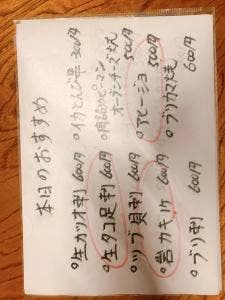 本日のおすすめ
°生カツオ刺 600円
°生タコ足刺 600円
°ツブ貝刺 600円
°岩カキ1ケ 600円
°ブリ刺 600円
°イカとんび串 300円
°肉詰めピーマン
オーブンチーズ焼 500円
°アヒージョ 500円
°ブリカマ焼 600円